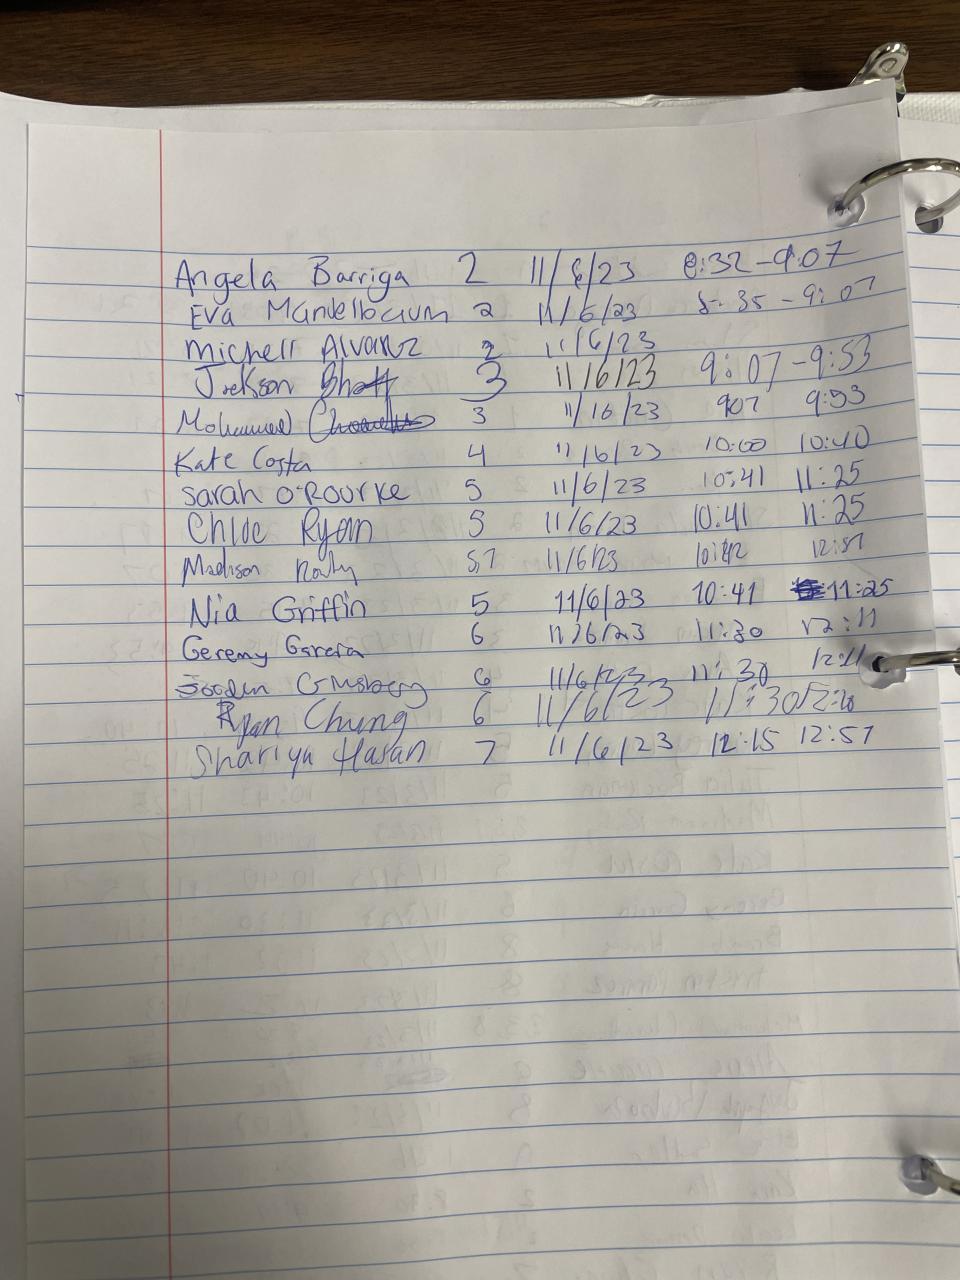 Angela Barriga 2 11/6/23 8:32 - 9:07
Eva Mandelbaum 2 11/6/23 8:35 - 9:07
Michell Alvarez 2 11/6/23
Jackson Bhatt 3 11/6/23 9:07 - 9:53
Mohammed 3 11/6/23 907 9:53
Kate Costa 4 11/6/23 10:00 10:40
Sarah O'Rourke 5 11/6/23 10:41 11:25
Chloe Ryan 5 11/6/23 10:41 11:25
Madison 5,7 11/6/23 10:42 12:57
Nia Griffin 5 11/6/23 10:41 11:25
Geremy Garcia 6 11/6/23 11:30 12:11
6 11/6/23 11:30 12:11
Ryan Chung 6 11/6/23 11:30
Shariya Hasan 7 11/6/23 12:15 12:57